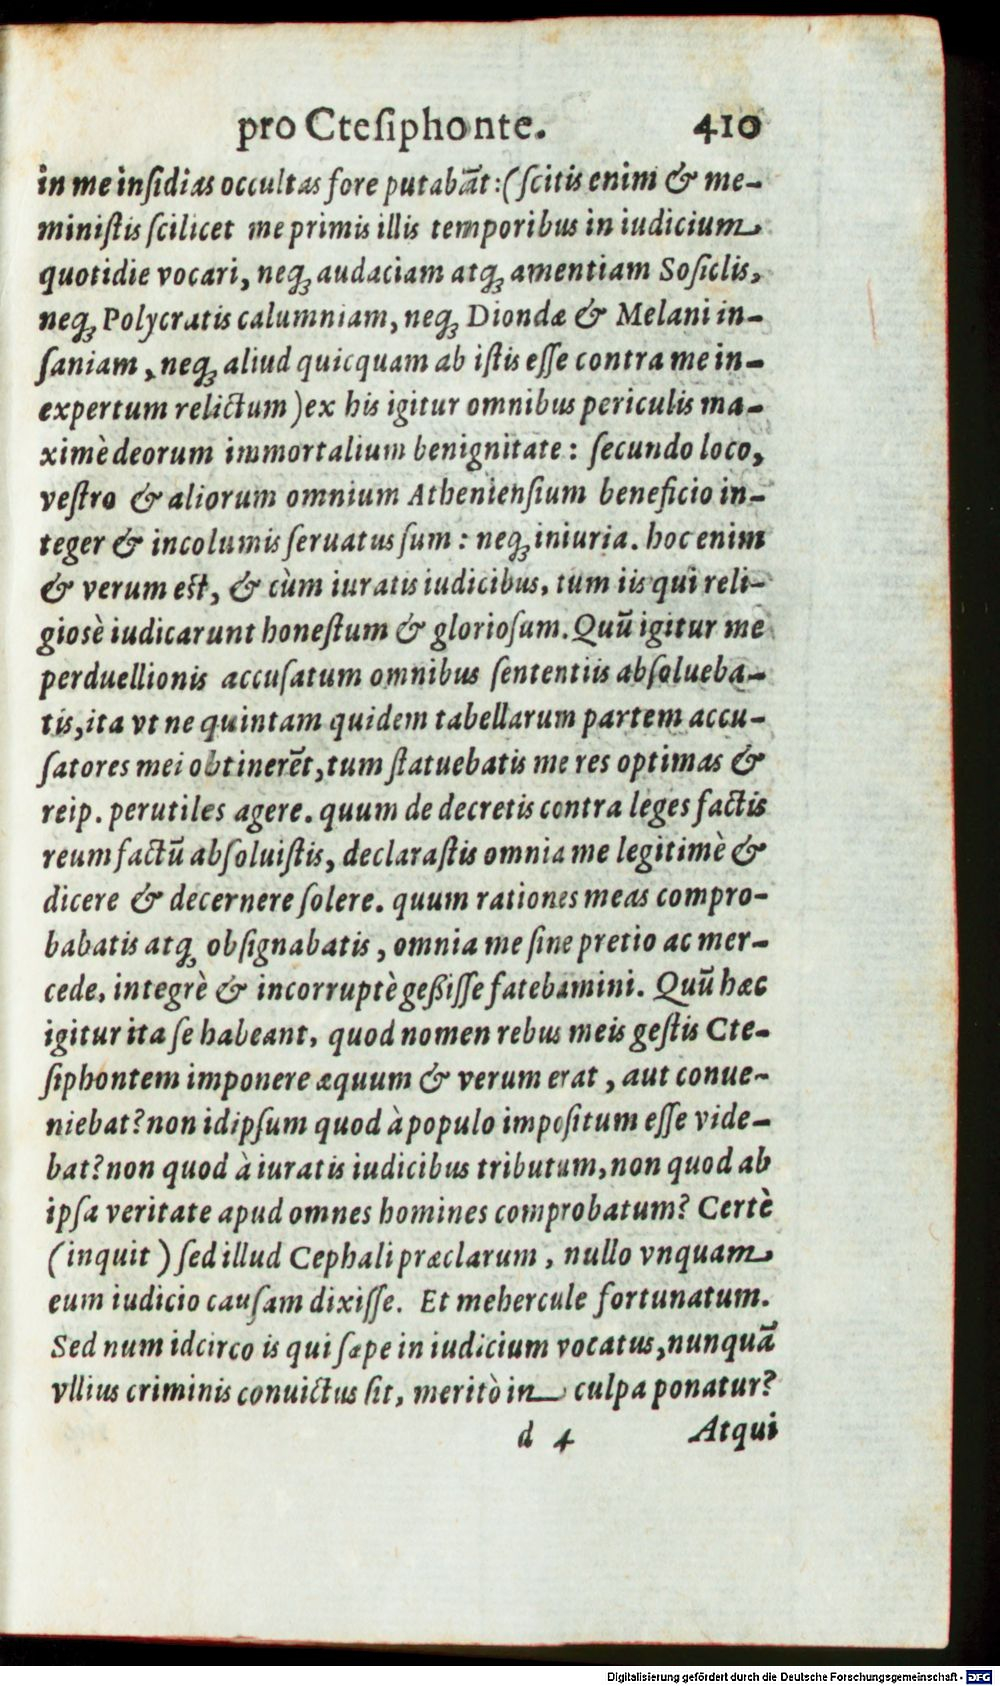 pro Cteſiphonte. 410
in me inſidias occultas fore putabāt:(ſcitis enim & me-
miniſtis ſcilicet me primis illis temporibus in iudicium
quotidie vocari, neq; audaciam atq; amentiam Soſiclis,
neq; Polycratis calumniam, neq; Diondæ & Melani in-
ſaniam, neq; aliud quicquam ab iſtis eſſe contra me in-
expertum relictum) ex his igitur omnibus periculis ma-
ximè deorum immortalium benignitate: ſecundo loco,
veſtro & aliorum omnium Athenienſium beneficio in-
teger & incolumis ſeruatus ſum: neq; iniuria. hoc enim
& verum eſt, & cùm iuratis iudicibus, tum iis qui reli-
gioſè iudicarunt honeſtum & glorioſum. Quū igitur me
perduellionis accuſatum omnibus ſententiis abſolueba-
tis, ita vt ne quintam quidem tabellarum partem accu-
ſatores mei obtinerēt, tum ſtatuebatis me res optimas &
reip. perutiles agere. quum de decretis contra leges factis
reum factū abſoluiſtis, declaraſtis omnia me legitimè &
dicere & decernere ſolere. quum rationes meas compro-
babatis atq; obſignabatis, omnia me ſine pretio ac mer-
cede, integrè & incorruptè geßiſſe fatebamini. Quū hæc
igitur ita ſe habeant, quod nomen rebus meis geſtis Cte-
ſiphontem imponere æquum & verum erat, aut conue-
niebat? non idipſum quod à populo impoſitum eſſe vide-
bat? non quod à iuratis iudicibus tributum, non quod ab
ipſa veritate apud omnes homines comprobatum? Certè
(inquit) ſed illud Cephali præclarum, nullo vnquam
eum iudicio cauſam dixiſſe. Et mehercule fortunatum.
Sed num idcirco is qui ſæpe in iudicium vocatus, nunquā
vllius criminis conuictus ſit, meritò in culpa ponatur?
d 4 Atqui
Digitalisierung gefördert durch die Deutsche Forschungsgemeinschaft - DFG